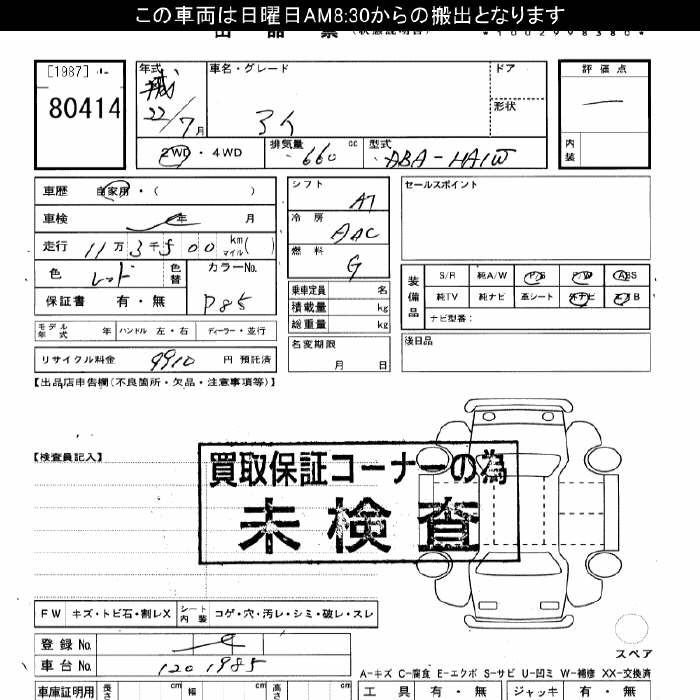 この車両は日曜日AM8:30からの搬出となります
出 品 票 (状態説明書) *1002998380*
[1987]
80414
年式 平成 22/7月
車名・グレード
アイ
ドア
形状
評価点
内装
2WD・4WD
排気量 660 cc
型式 ABA-HA1W
車歴 自家用・( )
車検 年 月
走行 11万3千500 km マイル( )
色 レッド 色替
カラーNo. P85
保証書 有・無
シフト AT
冷房 AAC
燃料 G
乗車定員 名
積載量 kg
総重量 kg
名変期限 月 日
セールスポイント
装備品
S/R 純A/W P/S P/W ABS
純TV 純ナビ 革シート 外ナビ エアB
ナビ型番:
後日品
モデル年式 年 ハンドル 左・右 ディーラー・並行
リサイクル料金 9910 円 預託済
【出品店申告欄(不良箇所・欠品・注意事項等)】
【検査員記入】
買取保証コーナーの為
未検査
FW キズ・トビ石・割レX シート内装 コゲ・穴・汚レ・シミ・破レ・スレ
登録No.
車台No. 1201985
スペア
A-キズ C-腐食 E-エクボ S-サビ U-凹ミ W-補修 XX-交換済
車庫証明用 長さ cm 幅 cm 高さ cm
工具 有・無 ジャッキ 有・無